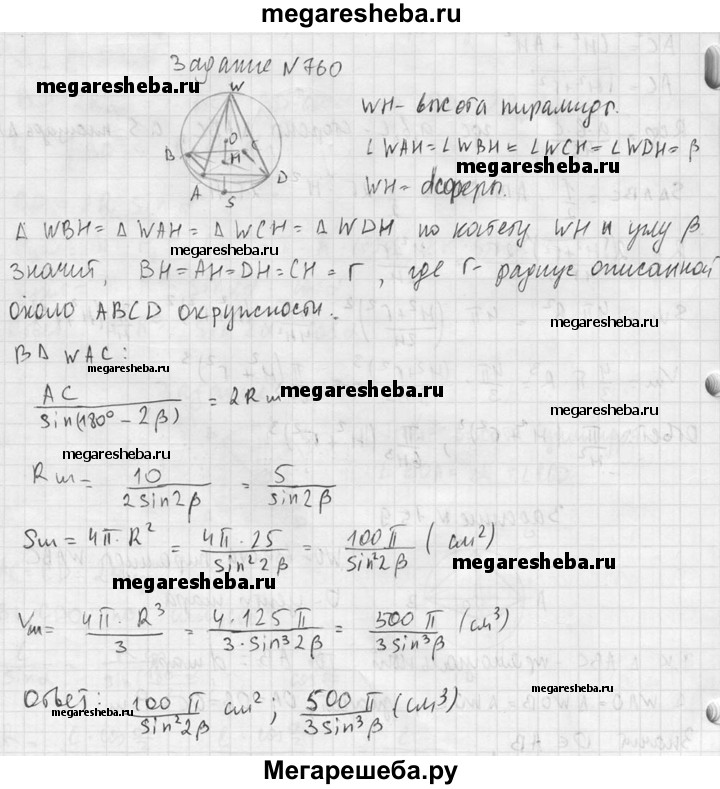 megaresheba.ru
Задание N 760
W
megaresheba.ru
O
B
H
C
A
D
S
WH - высота пирамиды.
∠WAH = ∠WBH = ∠WCH = ∠WDH = β
megaresheba.ru
WH =
Δ WBH = Δ WAH = Δ WCH = Δ WDH по катету WH и углу β
megaresheba.ru
значит, BH = AH = DH = CH = r, где r - радиус описанной
около ABCD окружности.
megaresheba.ru
В Δ WAC:
megaresheba.ru
AC / sin(180° - 2β) = 2Rш
megaresheba.ru
Rш = 10 / 2sin2β = 5 / sin2β
megaresheba.ru
Sш = 4π · R² = 4π · 25 / sin²2β = 100π / sin²2β (см²)
megaresheba.ru
megaresheba.ru
Vш = 4π · R³ / 3 = 4 · 125π / 3 · sin³2β = 500π / 3sin³β (см³)
megaresheba.ru
Ответ: 100π / sin²2β см²; 500π / 3sin³β (см³)
megaresheba.ru
megaresheba.ru
Мегарешеба.ру